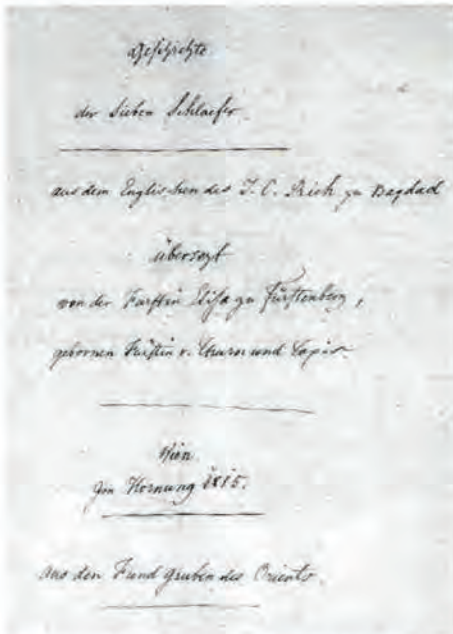 Geschichte
der Sieben Schlaefer.
aus dem Englischen des J. C. Rich zu Bagdad
übersezt
von der Fürstin Elisa zu Fürstenberg,
gebornen Fürstin v. Thurn und Taxis.
Wien.
Im Hornung 1815.
aus den Fundgruben des Orients.